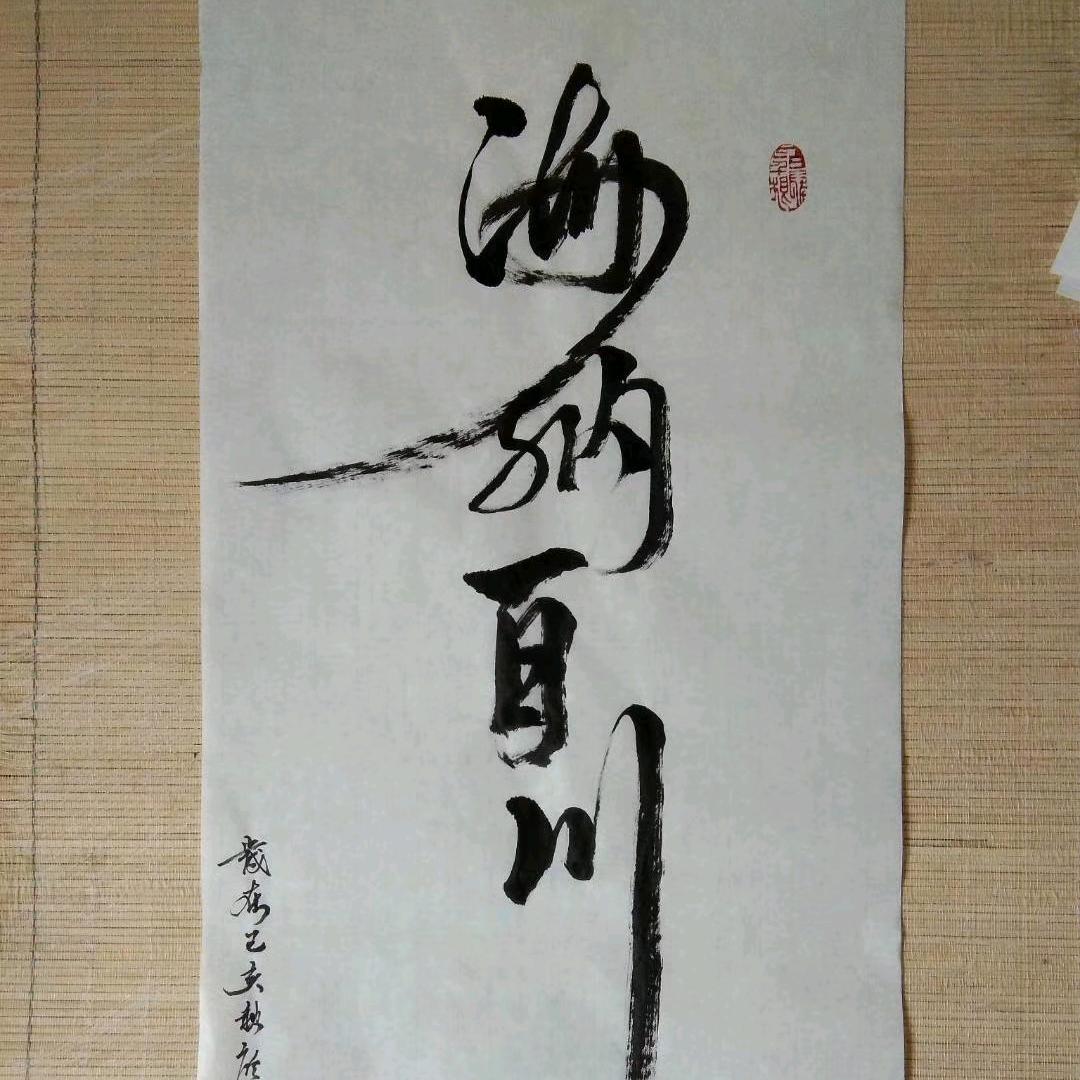 海纳百川
岁在己亥秋